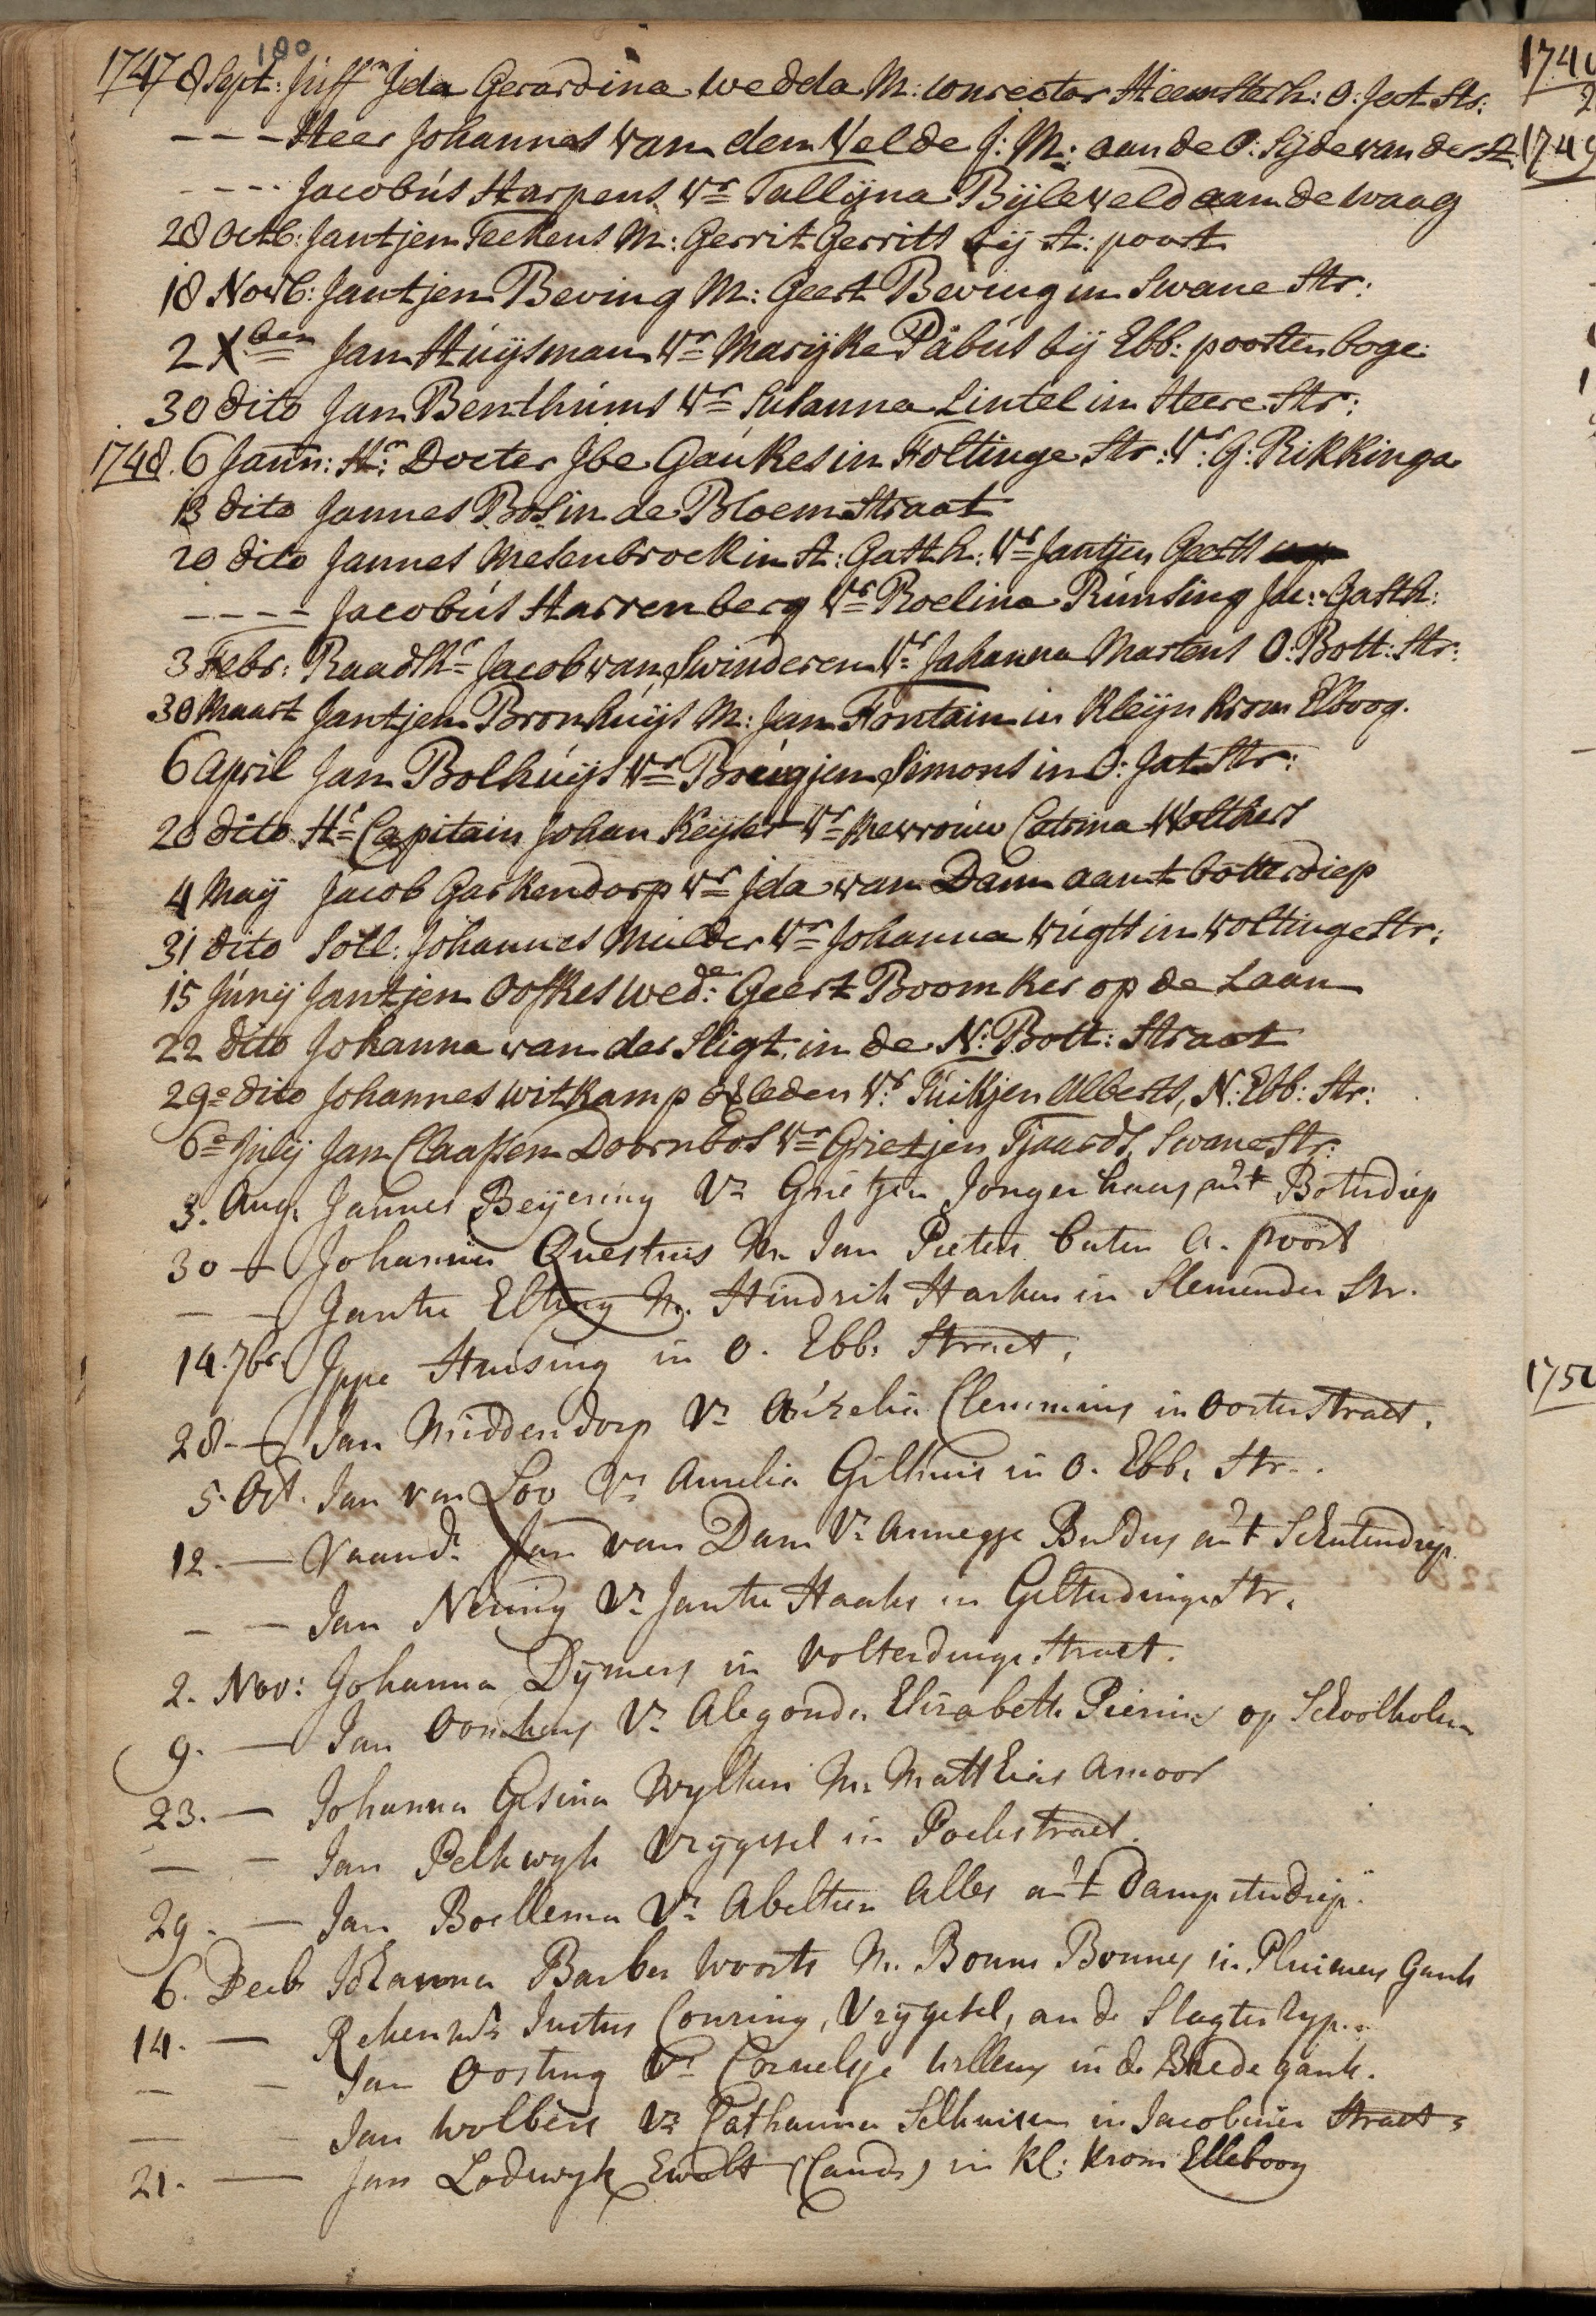 180
1747 8 Sept: Juffn Ida Gerardina Wedda M: Conrector Heemsterh: O: Jat Str:
- - - Heer Johannes van dem Velde J: M: aan de O: Sijde van der A
- - - - Jacobús Harpens Vr Tallijna Bijleveld aan de waag
28 Octb: Jantjen Teekens M: Gerrit Gerrits bij A: poort
18 Novb: Jantjen Beving M: Geert Beving in Swane Str:
2 Xben Jan Húijsman Vr Marijke Pabús bij Ebb: poorten boge:
30 dito Jan Benthúms Vr Súsanna Lintel in Heere Str:
1748. 6 Jann: Hr: Docter Ibe Gaúkes in Foltinge Str: Vr: G: Rikkinga
13 dito Jannes Bos in de Bloem Straat
20 dito Jannes Mesenbroek in A: Gasth: Vr Jantjen Geerts
- - - - Jacobús Harrenberg Vr Roelina Rúnsing Jac: Gasth:
3 Febr: Raadsh r Jacob van Swinderen Vr Johanna Martens O: Bott: Str:
30 Maart Jantjen Bronhúijs M: Jan Fontain in Kleijn Krom Elboog.
6 April Jan Bolhúijs Vr Breúgjen Simons in O: Jat Str:
20 dito Hr Capitain Johan Keijser Vr Mevroúw Catrina Wolthers
4 Maij Jacob Garkendorp Vr Ida van Dam aan t botterdiep
31 dito Soll: Johannes Múlder Vr Johanna Vúgts in Voltinge Str:
15 Júnij Jantjen Oofkes wede: Geert Boomker op de Laan
22 dito Johanna van der Sligt in de N: Bott: Straat
29e dito Johannes Witkamp Vr: Túikjen Alberts, N: Ebb: Str:
6e Júlij Jan Claassen Doornbos Vr Grietjen Tjaards, Swane Str:
3. Aug. Jannes Beijering Vr Grietjen Jongerhuis an't Boterdiep
30 — Johannes Questius M. Jan Pieters buten A. poort
— — Jantie Elting M. Hindrik Harkes in Slemender Str.
14. 7br. Ippe Hensing in O. Ebb. Straet.
28. — Jan Middendorp Vr Aurelia Clemmins in Oosterstraet.
5. Oct. Jan van Loo Vr Aurelia Gilhuis in O. Ebb. Str.
12. — Vaandr Jan van Dam Vr Annegje Buldus an't Schutendiep
— — Jan Nening Vr Jantie Haaks in Gelkedinge Str.
2. Nov: Johanna Dymers in Volterdinge Straet.
9. — Jan Vr Alegonda Elisabeth Pierins op Schoolholm
23. — Johanna Gesina Wylken M. Matthias Amoor
— — Jan Pelkwyk Vrygesel in Poelestraet.
29. — Jan Boellema Vr Abeltien Alles an't Dampsterdiep.
6. Decb Johanna Barber Woorts M. Bonne Bonnes in Pluimers Gank
14. — Justus Conring, Vrygesel, an de Slagters ryp.
— — Jan Oosting Vr Cornelsje Willems in de Brede gank.
— — Jan Wolbers Vr Catharina Selhuisen in Jacobiner Straet
21. — Jan Lodewyk Ewolt (Cand.) in Kl: Krom Elleboog
1748
1749
1750